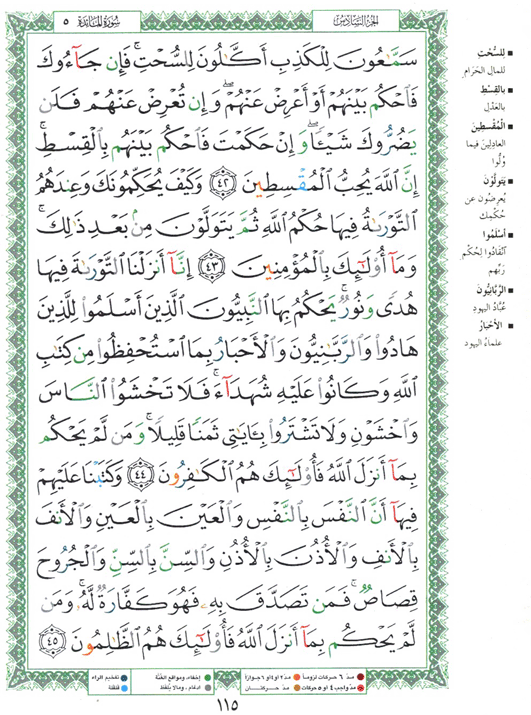 الجزء السادس
سورة المائدة ٥
سَمَّـٰعُونَ لِلْكَذِبِ أَكَّـٰلُونَ لِلسُّحْتِ ۚ فَإِن جَآءُوكَ
فَٱحْكُم بَيْنَهُمْ أَوْ أَعْرِضْ عَنْهُمْ ۖ وَإِن تُعْرِضْ عَنْهُمْ فَلَن
يَضُرُّوكَ شَيْـًٔا ۖ وَإِنْ حَكَمْتَ فَٱحْكُم بَيْنَهُم بِٱلْقِسْطِ ۚ
إِنَّ ٱللَّهَ يُحِبُّ ٱلْمُقْسِطِينَ ٤٢ وَكَيْفَ يُحَكِّمُونَكَ وَعِندَهُمُ
ٱلتَّوْرَىٰةُ فِيهَا حُكْمُ ٱللَّهِ ثُمَّ يَتَوَلَّوْنَ مِنۢ بَعْدِ ذَٰلِكَ ۚ
وَمَآ أُو۟لَـٰٓئِكَ بِٱلْمُؤْمِنِينَ ٤٣ إِنَّآ أَنزَلْنَا ٱلتَّوْرَىٰةَ فِيهَا
هُدًى وَنُورٌ ۚ يَحْكُمُ بِهَا ٱلنَّبِيُّونَ ٱلَّذِينَ أَسْلَمُوا۟ لِلَّذِينَ
هَادُوا۟ وَٱلرَّبَّـٰنِيُّونَ وَٱلْأَحْبَارُ بِمَا ٱسْتُحْفِظُوا۟ مِن كِتَـٰبِ
ٱللَّهِ وَكَانُوا۟ عَلَيْهِ شُهَدَآءَ ۚ فَلَا تَخْشَوُا۟ ٱلنَّاسَ
وَٱخْشَوْنِ وَلَا تَشْتَرُوا۟ بِـَٔايَـٰتِى ثَمَنًا قَلِيلًا ۚ وَمَن لَّمْ يَحْكُم
بِمَآ أَنزَلَ ٱللَّهُ فَأُو۟لَـٰٓئِكَ هُمُ ٱلْكَـٰفِرُونَ ٤٤ وَكَتَبْنَا عَلَيْهِمْ
فِيهَآ أَنَّ ٱلنَّفْسَ بِٱلنَّفْسِ وَٱلْعَيْنَ بِٱلْعَيْنِ وَٱلْأَنفَ
بِٱلْأَنفِ وَٱلْأُذُنَ بِٱلْأُذُنِ وَٱلسِّنَّ بِٱلسِّنِّ وَٱلْجُرُوحَ
قِصَاصٌ ۚ فَمَن تَصَدَّقَ بِهِۦ فَهُوَ كَفَّارَةٌ لَّهُۥ ۚ وَمَن
لَّمْ يَحْكُم بِمَآ أَنزَلَ ٱللَّهُ فَأُو۟لَـٰٓئِكَ هُمُ ٱلظَّـٰلِمُونَ ٤٥
لِلسُّحْتِ
للمال الحَرَامِ
بِالقِسْطِ
بالعَدْل
المُقْسِطِينَ
العادِلينَ فيما
وُلُّوا
يَتَوَلَّوْنَ
يُعرِضُون عن
حُكْمِك
أَسْلَمُوا
انْقَادُوا لِحُكْمِ
رَبِّهِم
الرَّبَّانِيُّونَ
عُبَّادُ اليهودِ
الأَحْبَارُ
علماءُ اليهود
مدّ ٦ حركات لزوماً مدّ ٢ أو ٤ أو ٦ جوازاً إخفاء، ومواقع الغُنَّة تفخيم الراء
مدّ واجب ٤ أو ٥ حركات مدّ حركتان إدغام، وما لا يُلفَظ قلقلة
١١٥